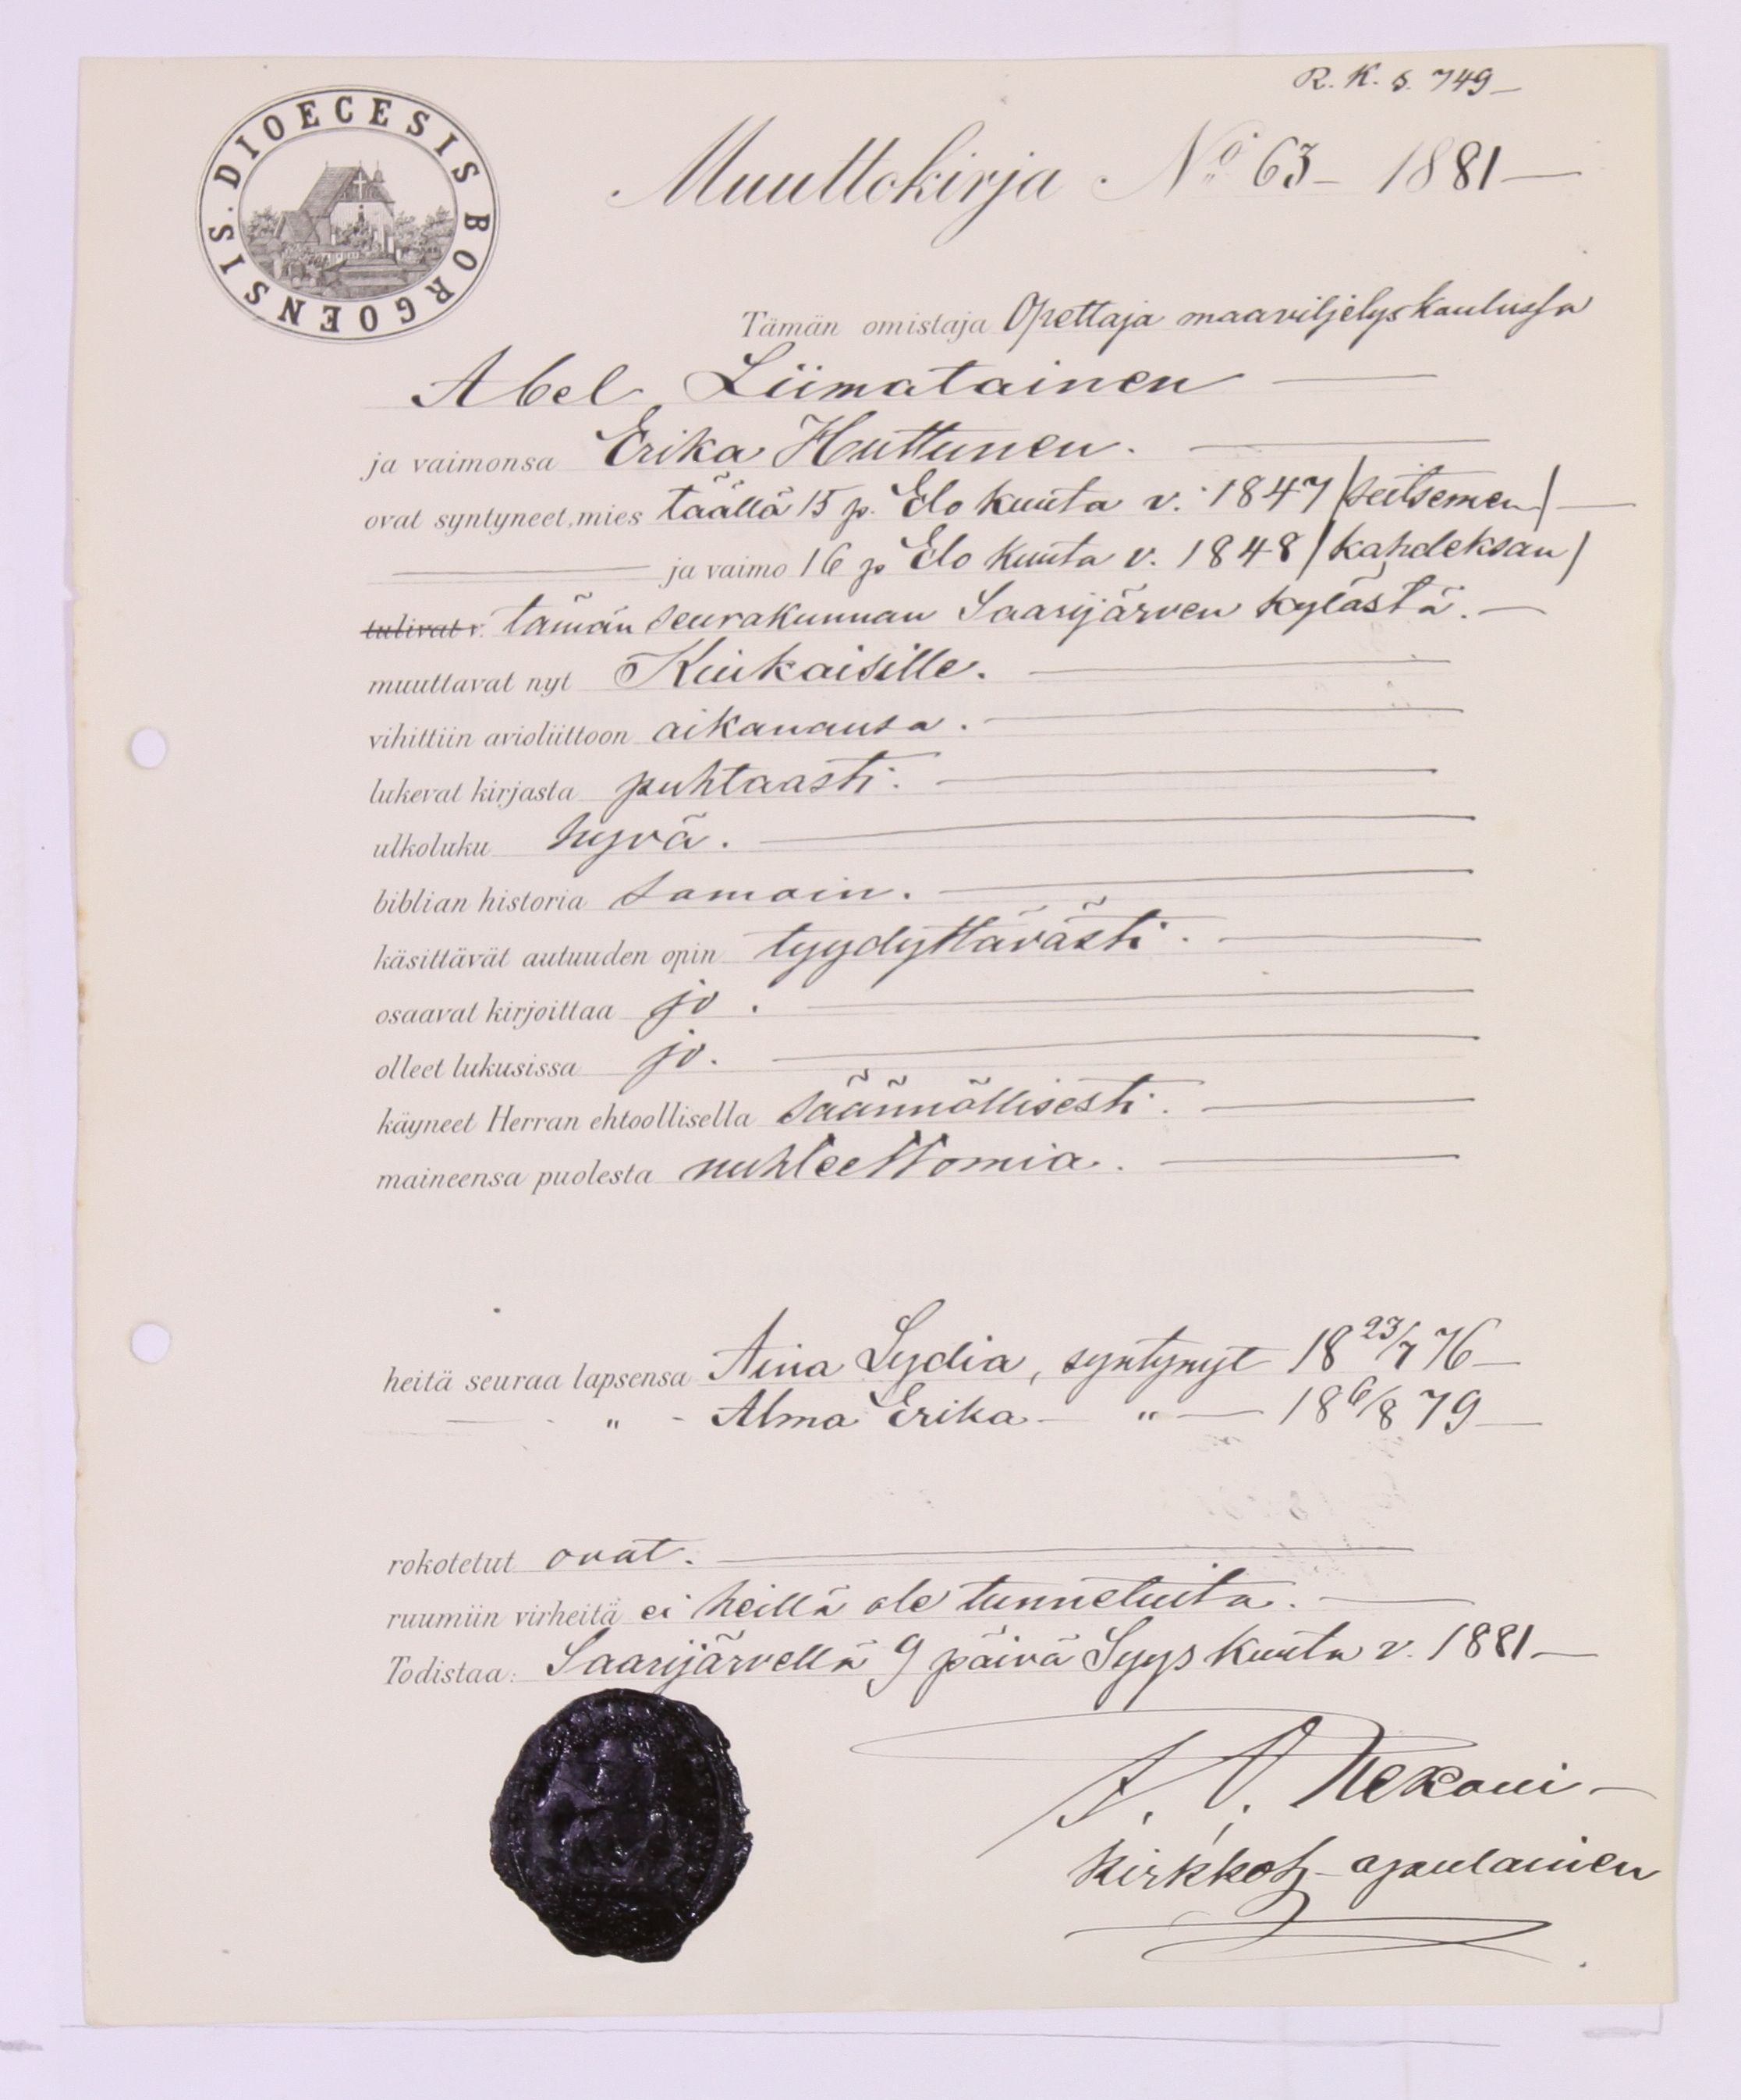 R. K. s. 749
DIOECESIS BORGOENSIS.
Muuttokirja No 63 - 1881
Tämän omistaja Opettaja maaviljelyskoulussa
Abel Liimatainen
ja vaimonsa Erika Huttunen.
ovat syntyneet, mies täällä 15 p. Elo kuuta v. 1847 /seitsemän/
ja vaimo 16 p Elo kuuta v. 1848 /kahdeksan/
tulivat v. tämän seurakunnan Saarijärven kylästä.
muuttavat nyt Kiukaisille.
vihittiin avioliittoon aikanansa.
lukevat kirjasta puhtaasti.
ulkoluku hyvä.
biblian historia samoin.
käsittävät autuuden opin tyydyttävästi.
osaavat kirjoittaa jo.
olleet lukusissa jo.
käyneet Herran ehtoollisella säännöllisesti.
maineensa puolesta nuhteettomia.
heitä seuraa lapsensa Aina Lydia, syntynyt 18 23/7 76
" - Alma Erika - " - 18 6/8 79
rokotetut ovat.
ruumiin virheitä ei heillä ole tunnetuita.
Todistaa: Saarijärvellä 9 päivä Syys kuuta v. 1881